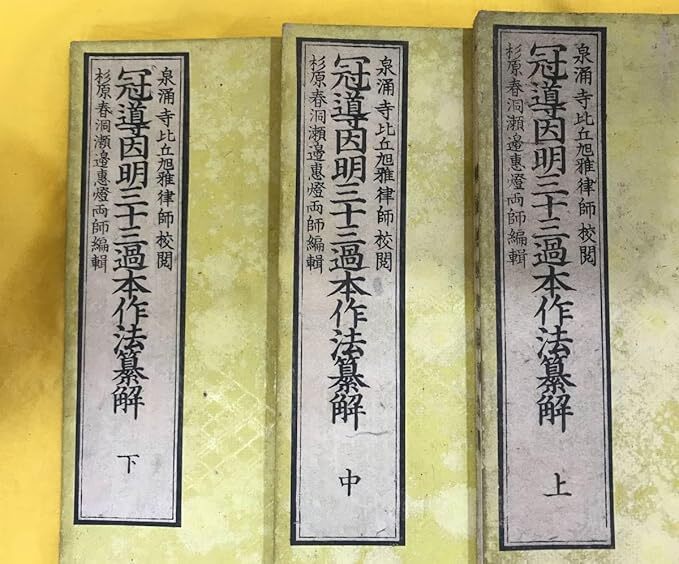 泉涌寺比丘旭雅律師校閲
冠導因明三十三過本作法纂解
杉原春洞瀬邉惠燈両師編輯
上
泉涌寺比丘旭雅律師校閲
冠導因明三十三過本作法纂解
杉原春洞瀬邉惠燈両師編輯
中
泉涌寺比丘旭雅律師校閲
冠導因明三十三過本作法纂解
杉原春洞瀬邉惠燈両師編輯
下